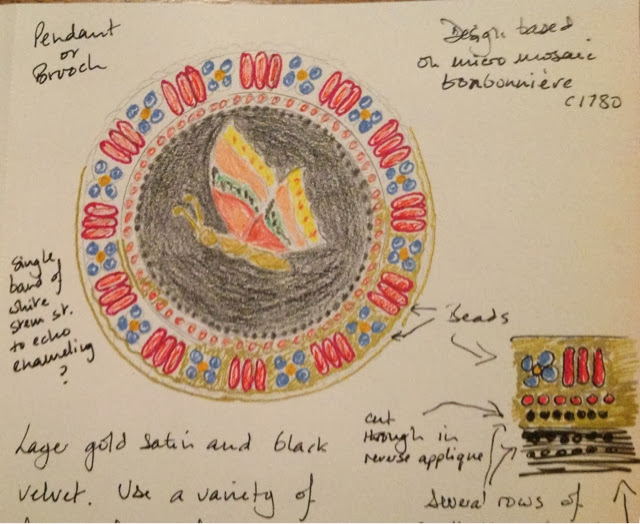 Pendant
or
Brooch
Design based
on micro mosaic
bonbonnière
c1780
single
band of
white
stem st.
to echo
enameling
?
Beads
cut
through in
reverse applique
Layer gold satin and black
velvet. Use a variety of
Several rows of